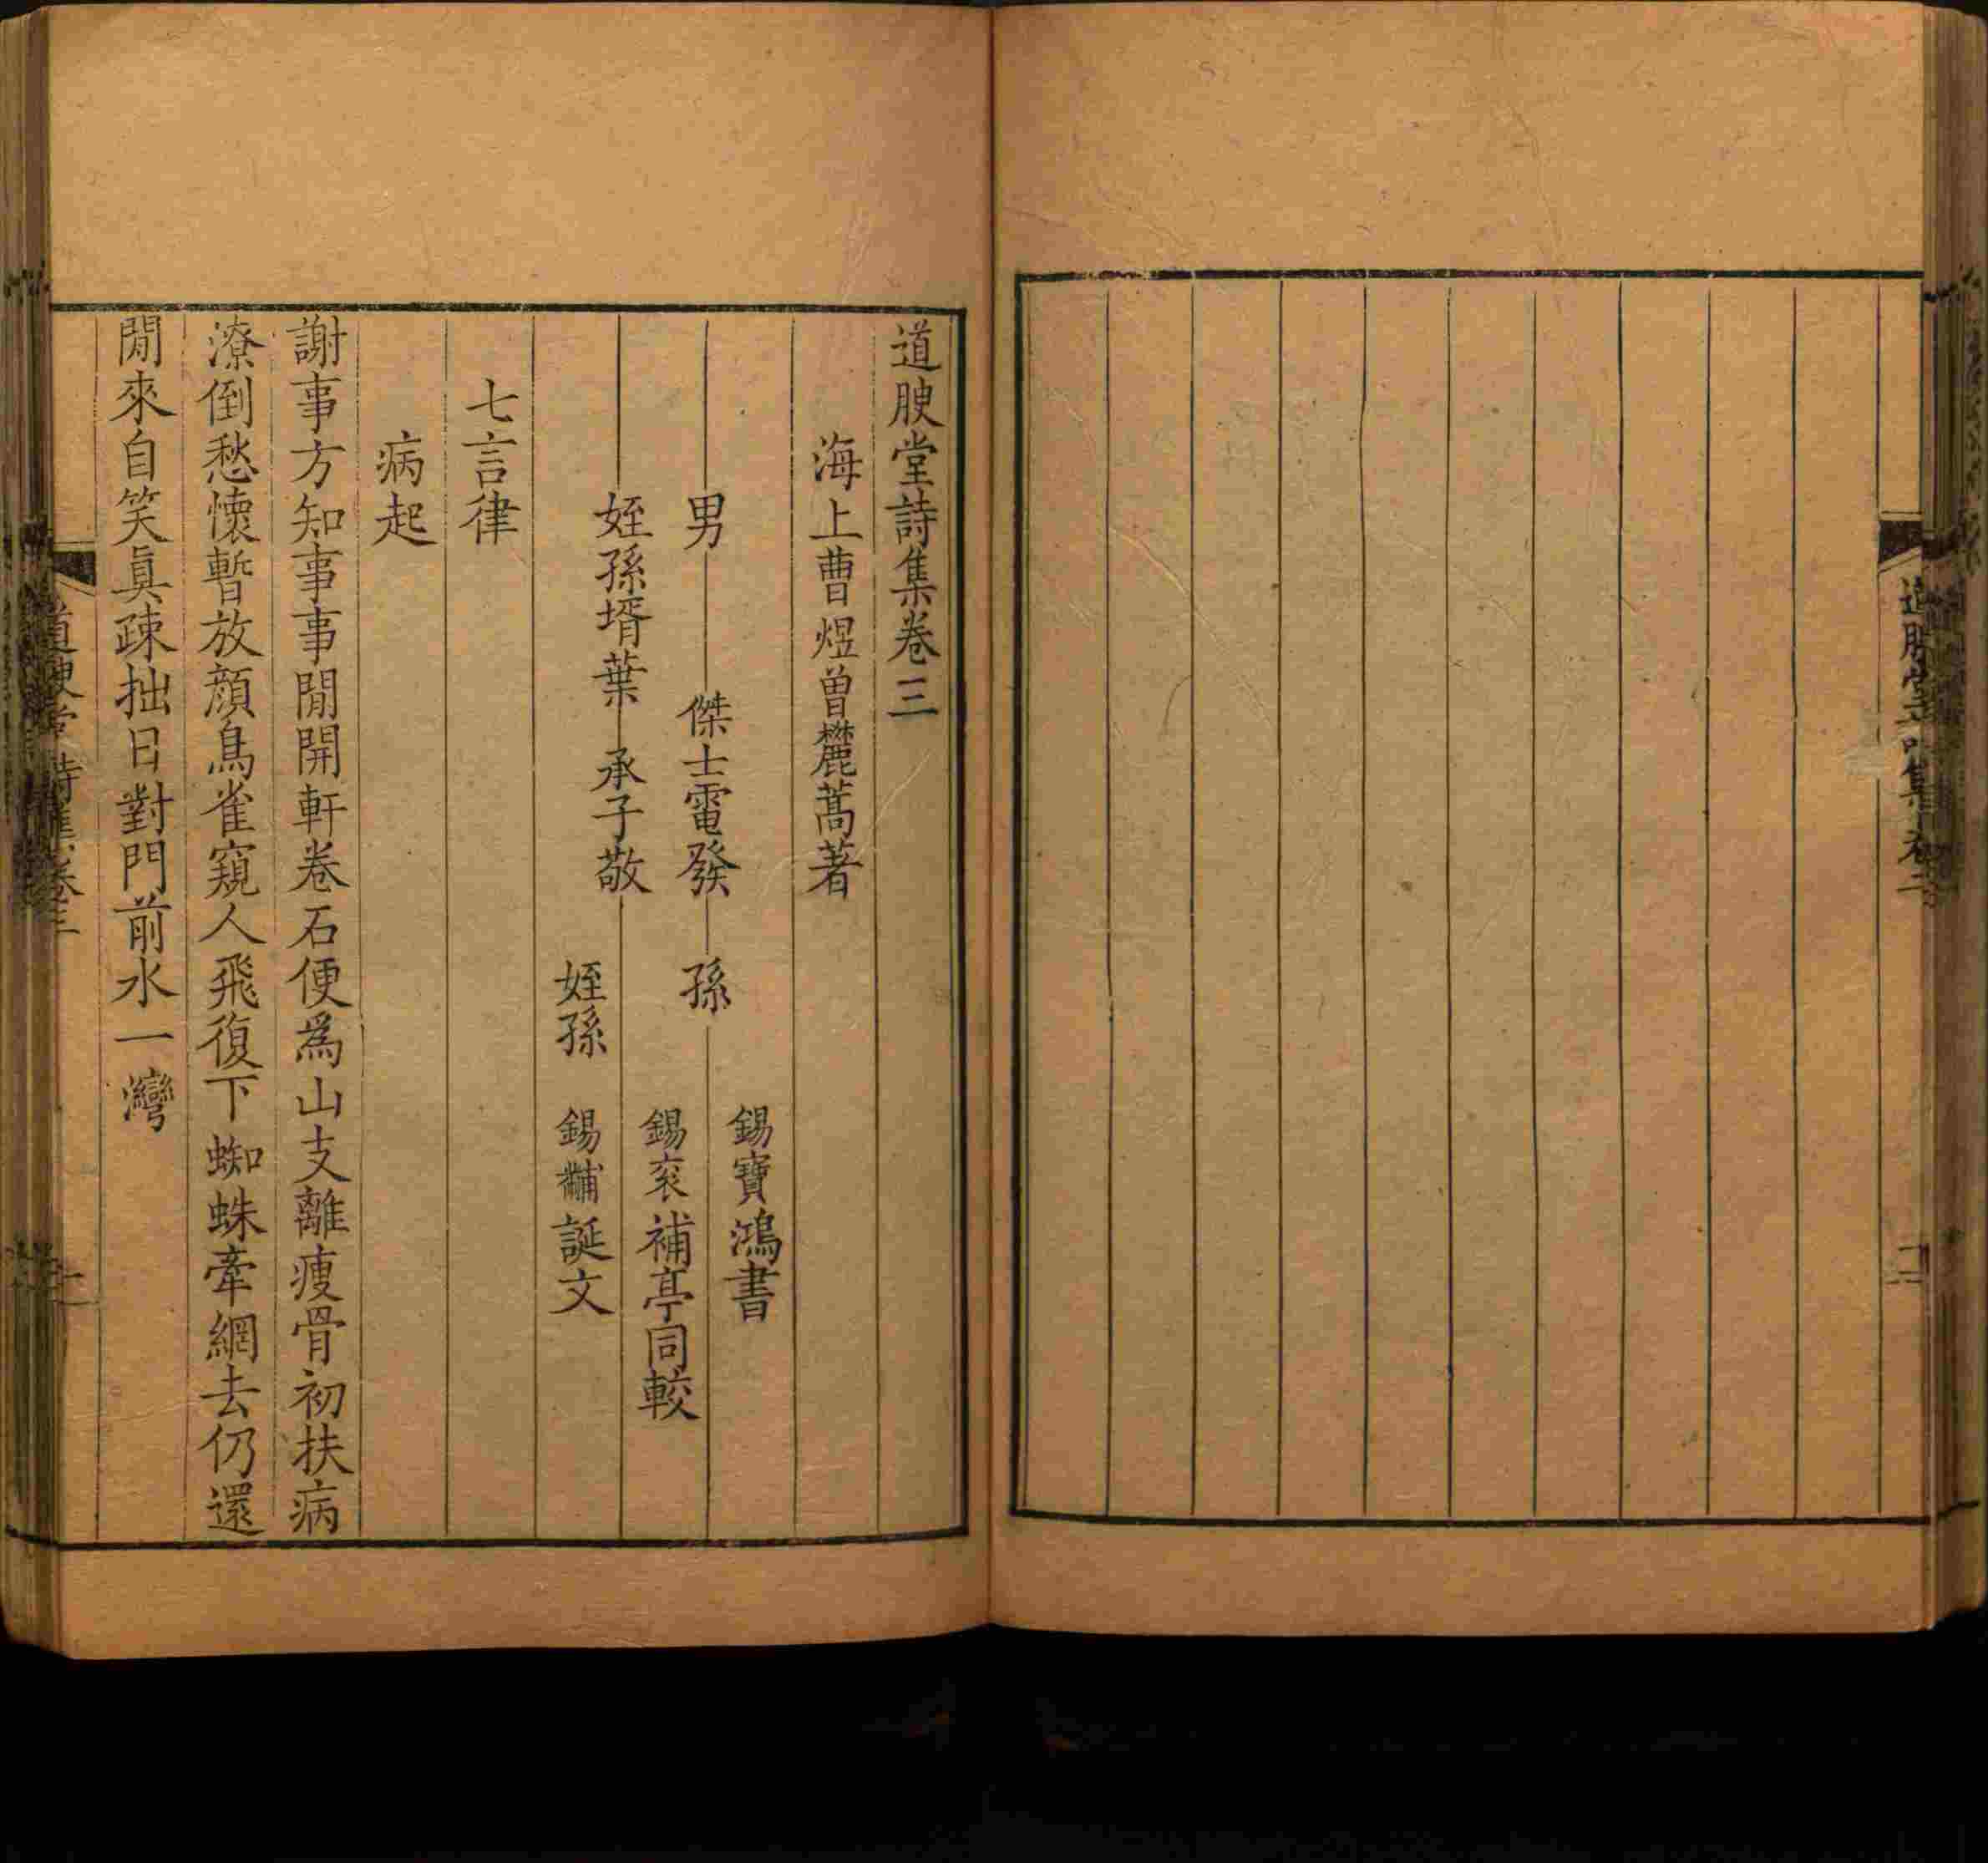 道腴堂詩集卷
道腴堂詩集卷三
海上曹煜曾麓蒿著
男 傑士電發 孫 錫寶鴻書
姪孫壻葉承子敬 錫袞補亭同較
姪孫 錫黼誕文
七言律
病起
謝事方知事事閒開軒卷石便爲山支離瘦骨初扶病
潦倒愁懷暫放顔鳥雀窺人飛復下蜘蛛牽網去仍還
閒來自笑眞疎拙日對門前水一灣
道腴堂詩集卷三
一